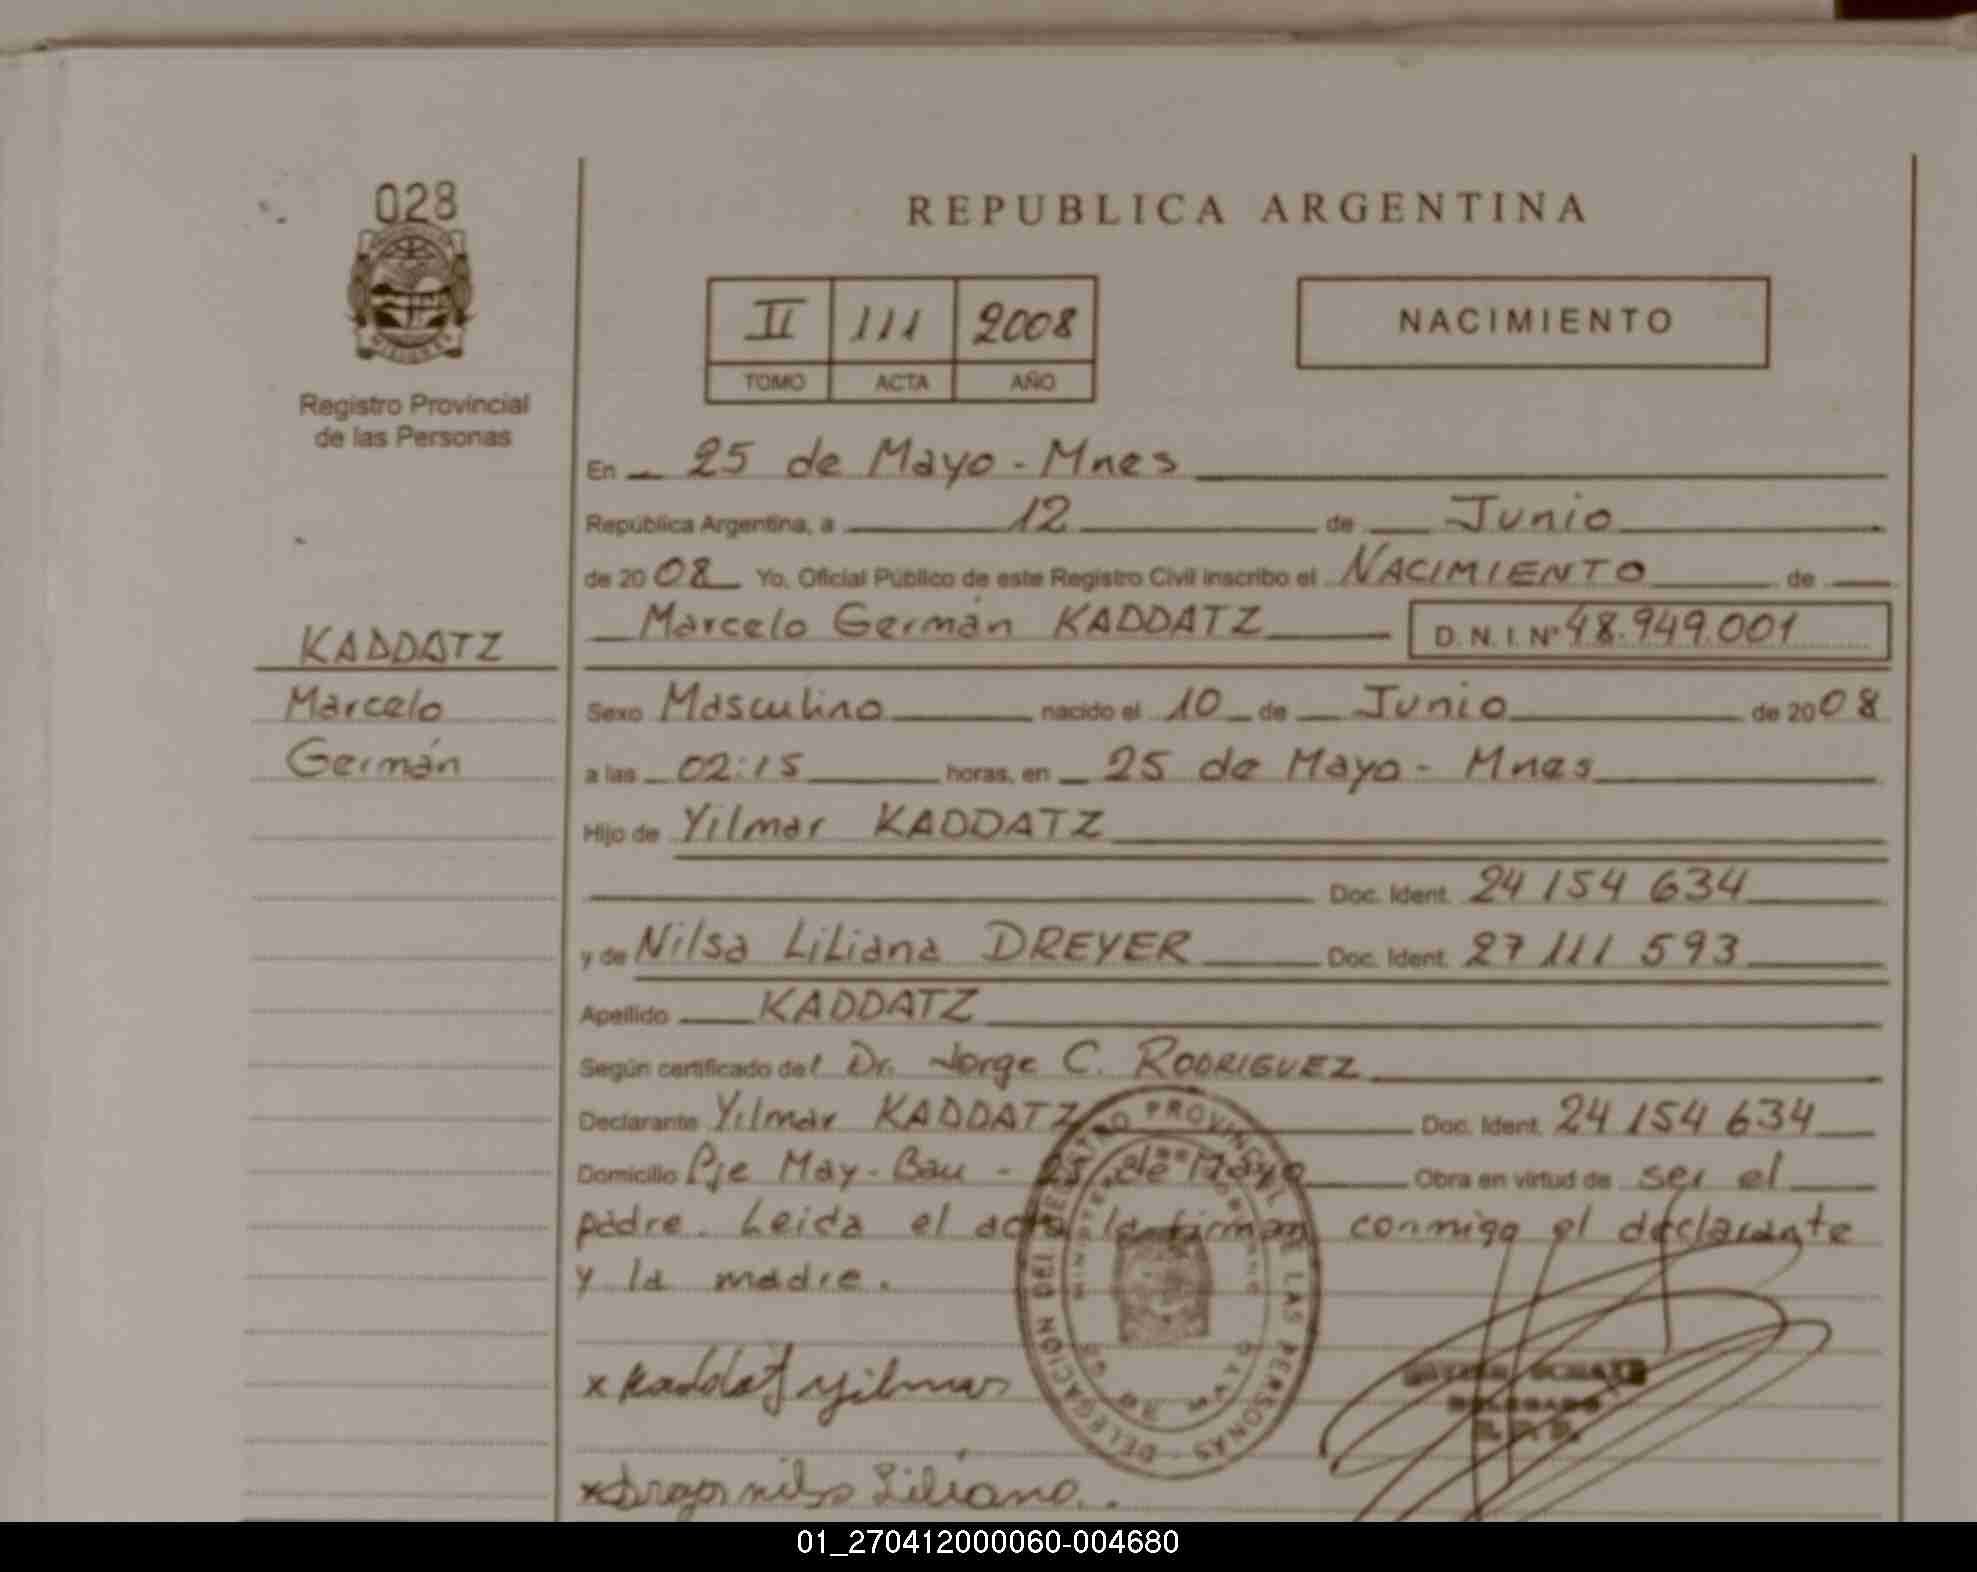 028
Registro Provincial
de las Personas
KADDATZ
Marcelo
Germán
REPUBLICA ARGENTINA
II 111 2008
TOMO ACTA AÑO
NACIMIENTO
En 25 de Mayo - Mnes
República Argentina, a 12 de Junio
de 2008 Yo, Oficial Público de este Registro Civil inscribo el NACIMIENTO de
Marcelo Germán KADDATZ D.N.I. Nº 48.949.001
Sexo Masculino nacido el 10 de Junio de 2008
a las 02:15 horas, en 25 de Mayo - Mnes
Hijo de Yilmar KADDATZ
Doc. Ident. 24 154 634
y de Nilsa Liliana DREYER Doc. Ident. 27 111 593
Apellido KADDATZ
Según certificado del Dr. Jorge C. RODRIGUEZ
Declarante Yilmar KADDATZ Doc. Ident. 24 154 634
Domicilio Pje May-Bau - 25 de Mayo Obra en virtud de ser el
padre. Leida el acta la firman conmigo el declarante
y la madre.
x Kaddatz Yilmar
x Dreyer nilsa Liliana.
DELEGACIÓN DEL REGISTRO PROVINCIAL DE LAS PERSONAS
25 DE MAYO
DELEGADO
01_270412000060-004680